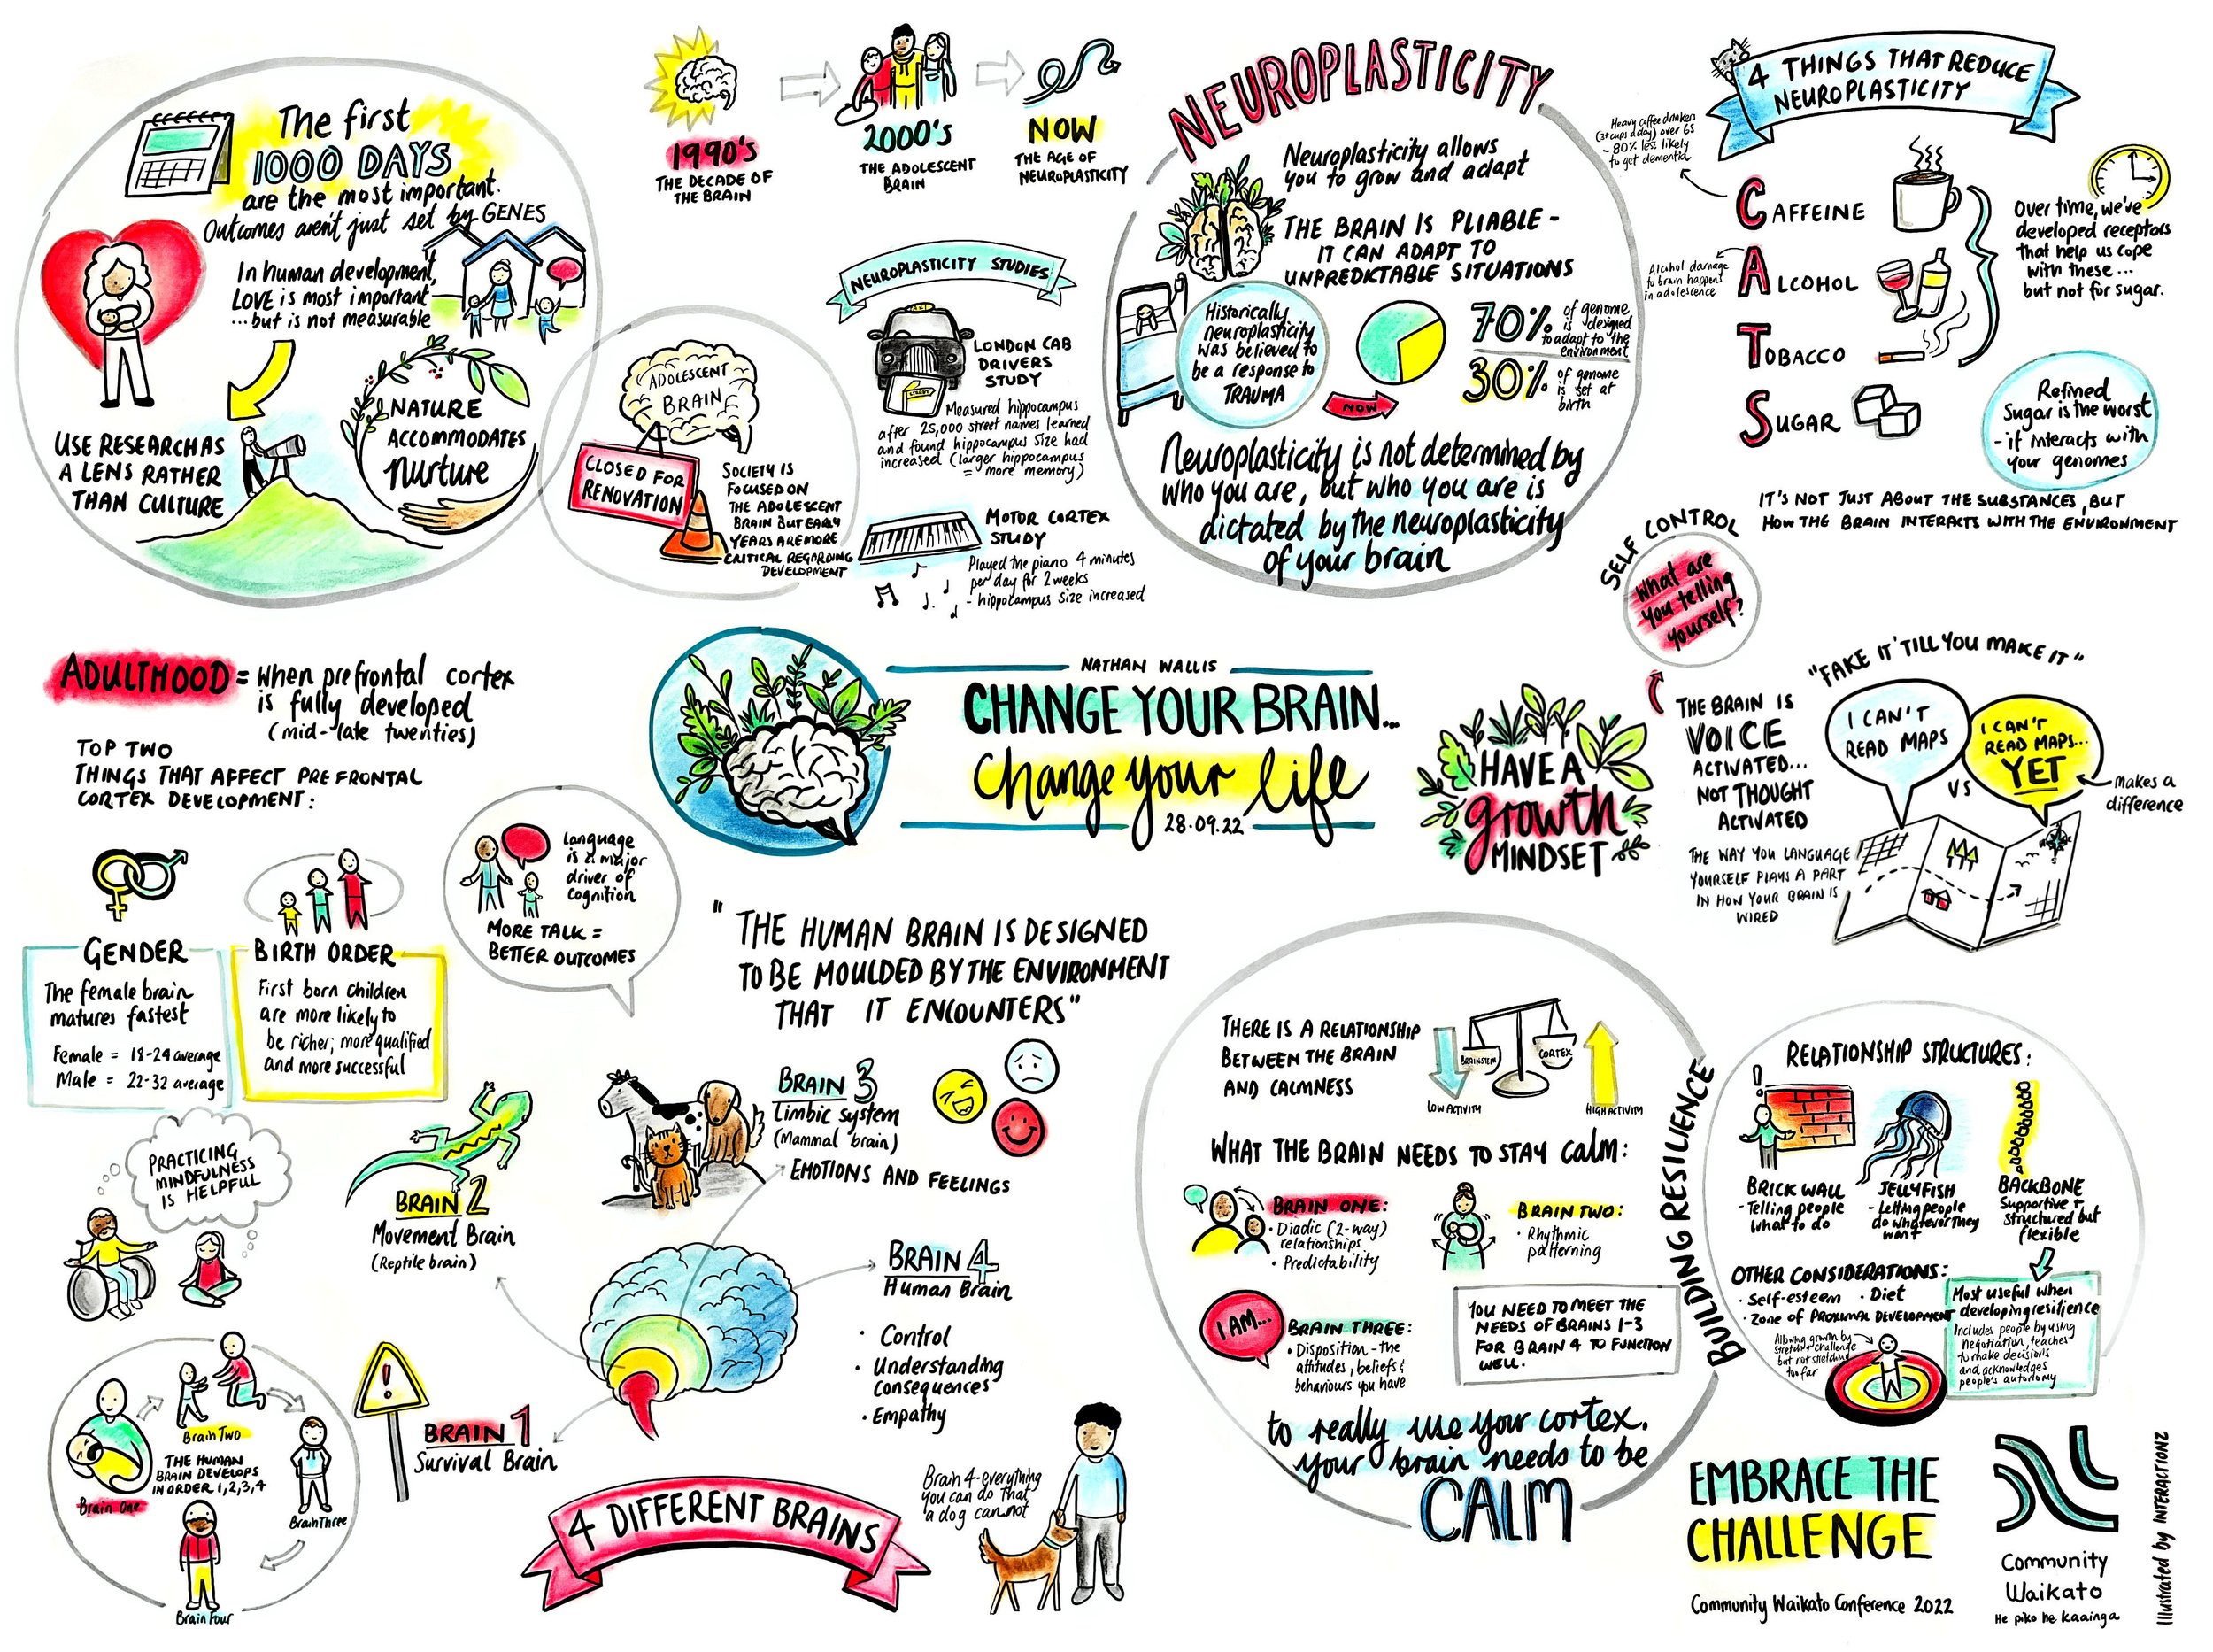 The first
1000 DAYS
are the most important.
Outcomes aren't just set by GENES
In human development,
LOVE is most important
...but is not measurable
USE RESEARCH AS
A LENS RATHER
THAN CULTURE
NATURE
ACCOMMODATES
nurture
ADOLESCENT
BRAIN
CLOSED FOR
RENOVATION
SOCIETY IS
FOCUSED ON
THE ADOLESCENT
BRAIN BUT EARLY
YEARS ARE MORE
CRITICAL REGARDING
DEVELOPMENT
1990's
THE DECADE OF
THE BRAIN
2000's
THE ADOLESCENT
BRAIN
NOW
THE AGE OF
NEUROPLASTICITY
NEUROPLASTICITY STUDIES
TAXI
STREET
LONDON CAB
DRIVERS
STUDY
Measured hippocampus
after 25,000 street names learned
and found hippocampus size had
increased (larger hippocampus
= more memory)
MOTOR CORTEX
STUDY
Played the piano 4 minutes
per day for 2 weeks
- hippocampus size increased
NEUROPLASTICITY
Neuroplasticity allows
you to grow and adapt
THE BRAIN IS PLIABLE -
IT CAN ADAPT TO
UNPREDICTABLE SITUATIONS
Historically
neuroplasticity
was believed to
be a response to
TRAUMA
NOW
70% of genome
is designed
to adapt to the
environment
30% of genome
is set at
birth
Neuroplasticity is not determined by
who you are, but who you are is
dictated by the neuroplasticity
of your brain
4 THINGS THAT REDUCE
NEUROPLASTICITY
Heavy coffee drinkers
(3+ cups a day) over 65
- 80% less likely
to get dementia
CAFFEINE
Alcohol damage
to brain happens
in adolescence
ALCOHOL
TOBACCO
SUGAR
Over time, we've
developed receptors
that help us cope
with these...
but not for sugar.
Refined
Sugar is the worst
- it interacts with
your genomes
IT'S NOT JUST ABOUT THE SUBSTANCES, BUT
HOW THE BRAIN INTERACTS WITH THE ENVIRONMENT
SELF CONTROL
What are
you telling
yourself?
THE BRAIN IS
VOICE
ACTIVATED...
NOT THOUGHT
ACTIVATED
THE WAY YOU LANGUAGE
YOURSELF PLAYS A PART
IN HOW YOUR BRAIN IS
WIRED
"FAKE IT 'TILL YOU MAKE IT"
I CAN'T
READ MAPS
VS
I CAN'T
READ MAPS...
YET
makes a
difference
HAVE A
growth
MINDSET
NATHAN WALLIS
CHANGE YOUR BRAIN...
Change your life
28.09.22
ADULTHOOD = when prefrontal cortex
is fully developed
(mid-late twenties)
TOP TWO
THINGS THAT AFFECT PREFRONTAL
CORTEX DEVELOPMENT:
GENDER
The female brain
matures fastest
Female = 18-24 average
Male = 22-32 average
BIRTH ORDER
First born children
are more likely to
be richer, more qualified
and more successful
Language
is a major
driver of
cognition
MORE TALK =
BETTER OUTCOMES
"THE HUMAN BRAIN IS DESIGNED
TO BE MOULDED BY THE ENVIRONMENT
THAT IT ENCOUNTERS"
PRACTICING
MINDFULNESS
IS HELPFUL
BRAIN 2
Movement Brain
(Reptile brain)
BRAIN 3
Limbic system
(Mammal brain)
EMOTIONS AND FEELINGS
BRAIN 4
Human Brain
• Control
• Understanding
consequences
• Empathy
BRAIN 1
Survival Brain
Brain One
Brain Two
Brain Three
Brain Four
THE HUMAN
BRAIN DEVELOPS
IN ORDER 1,2,3,4
4 DIFFERENT BRAINS
Brain 4-everything
you can do that
a dog cannot
THERE IS A RELATIONSHIP
BETWEEN THE BRAIN
AND CALMNESS
BRAINSTEM
CORTEX
LOW ACTIVITY
HIGH ACTIVITY
WHAT THE BRAIN NEEDS TO STAY CALM:
BRAIN ONE:
• Diadic (2-way)
relationships
• Predictability
BRAIN TWO:
• Rhythmic
patterning
I AM...
BRAIN THREE:
• Disposition - the
attitudes, beliefs &
behaviours you have
YOU NEED TO MEET THE
NEEDS OF BRAINS 1-3
FOR BRAIN 4 TO FUNCTION
WELL.
to really use your cortex,
your brain needs to be
CALM
BUILDING RESILIENCE
RELATIONSHIP STRUCTURES:
BRICK WALL
- Telling people
what to do
JELLYFISH
- Letting people
do whatever they
want
BACKBONE
Supportive +
structured but
flexible
OTHER CONSIDERATIONS:
• Self-esteem • Diet
• Zone of PROXIMAL DEVELOPMENT
Allowing growth by
stretch + challenge
but not stretching
too far
Most useful when
developing resilience
Includes people by using
negotiation, teaches
to make decisions
and acknowledges
people's autonomy
EMBRACE THE
CHALLENGE
Community Waikato Conference 2022
Community
Waikato
He piko he kaainga
Illustrated by INTERACTIONZ